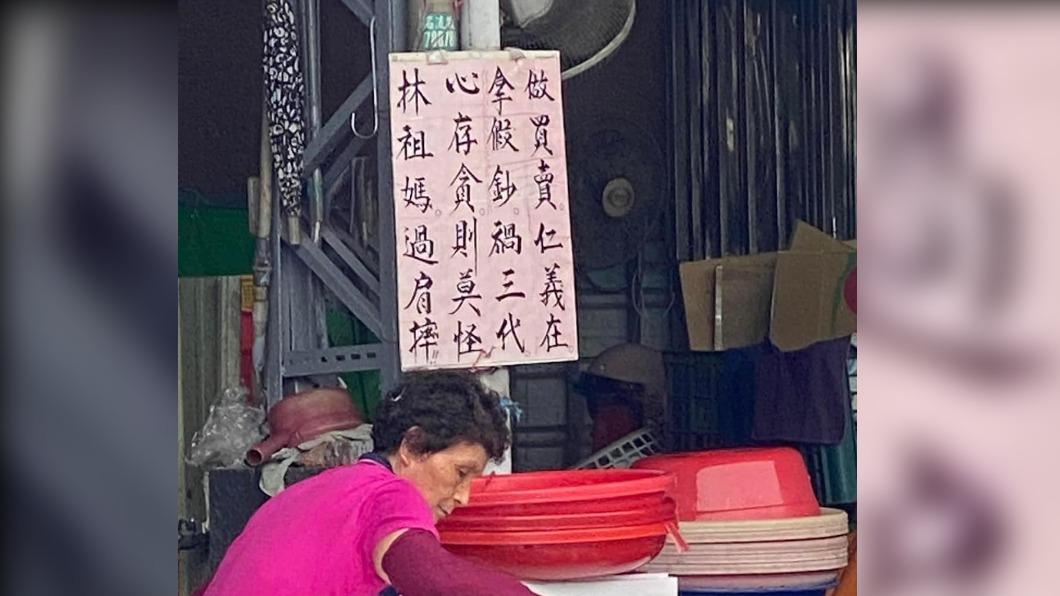 做買賣仁義在。
拿假鈔禍三代。
心存貪則莫怪。
林祖媽過肩摔!!